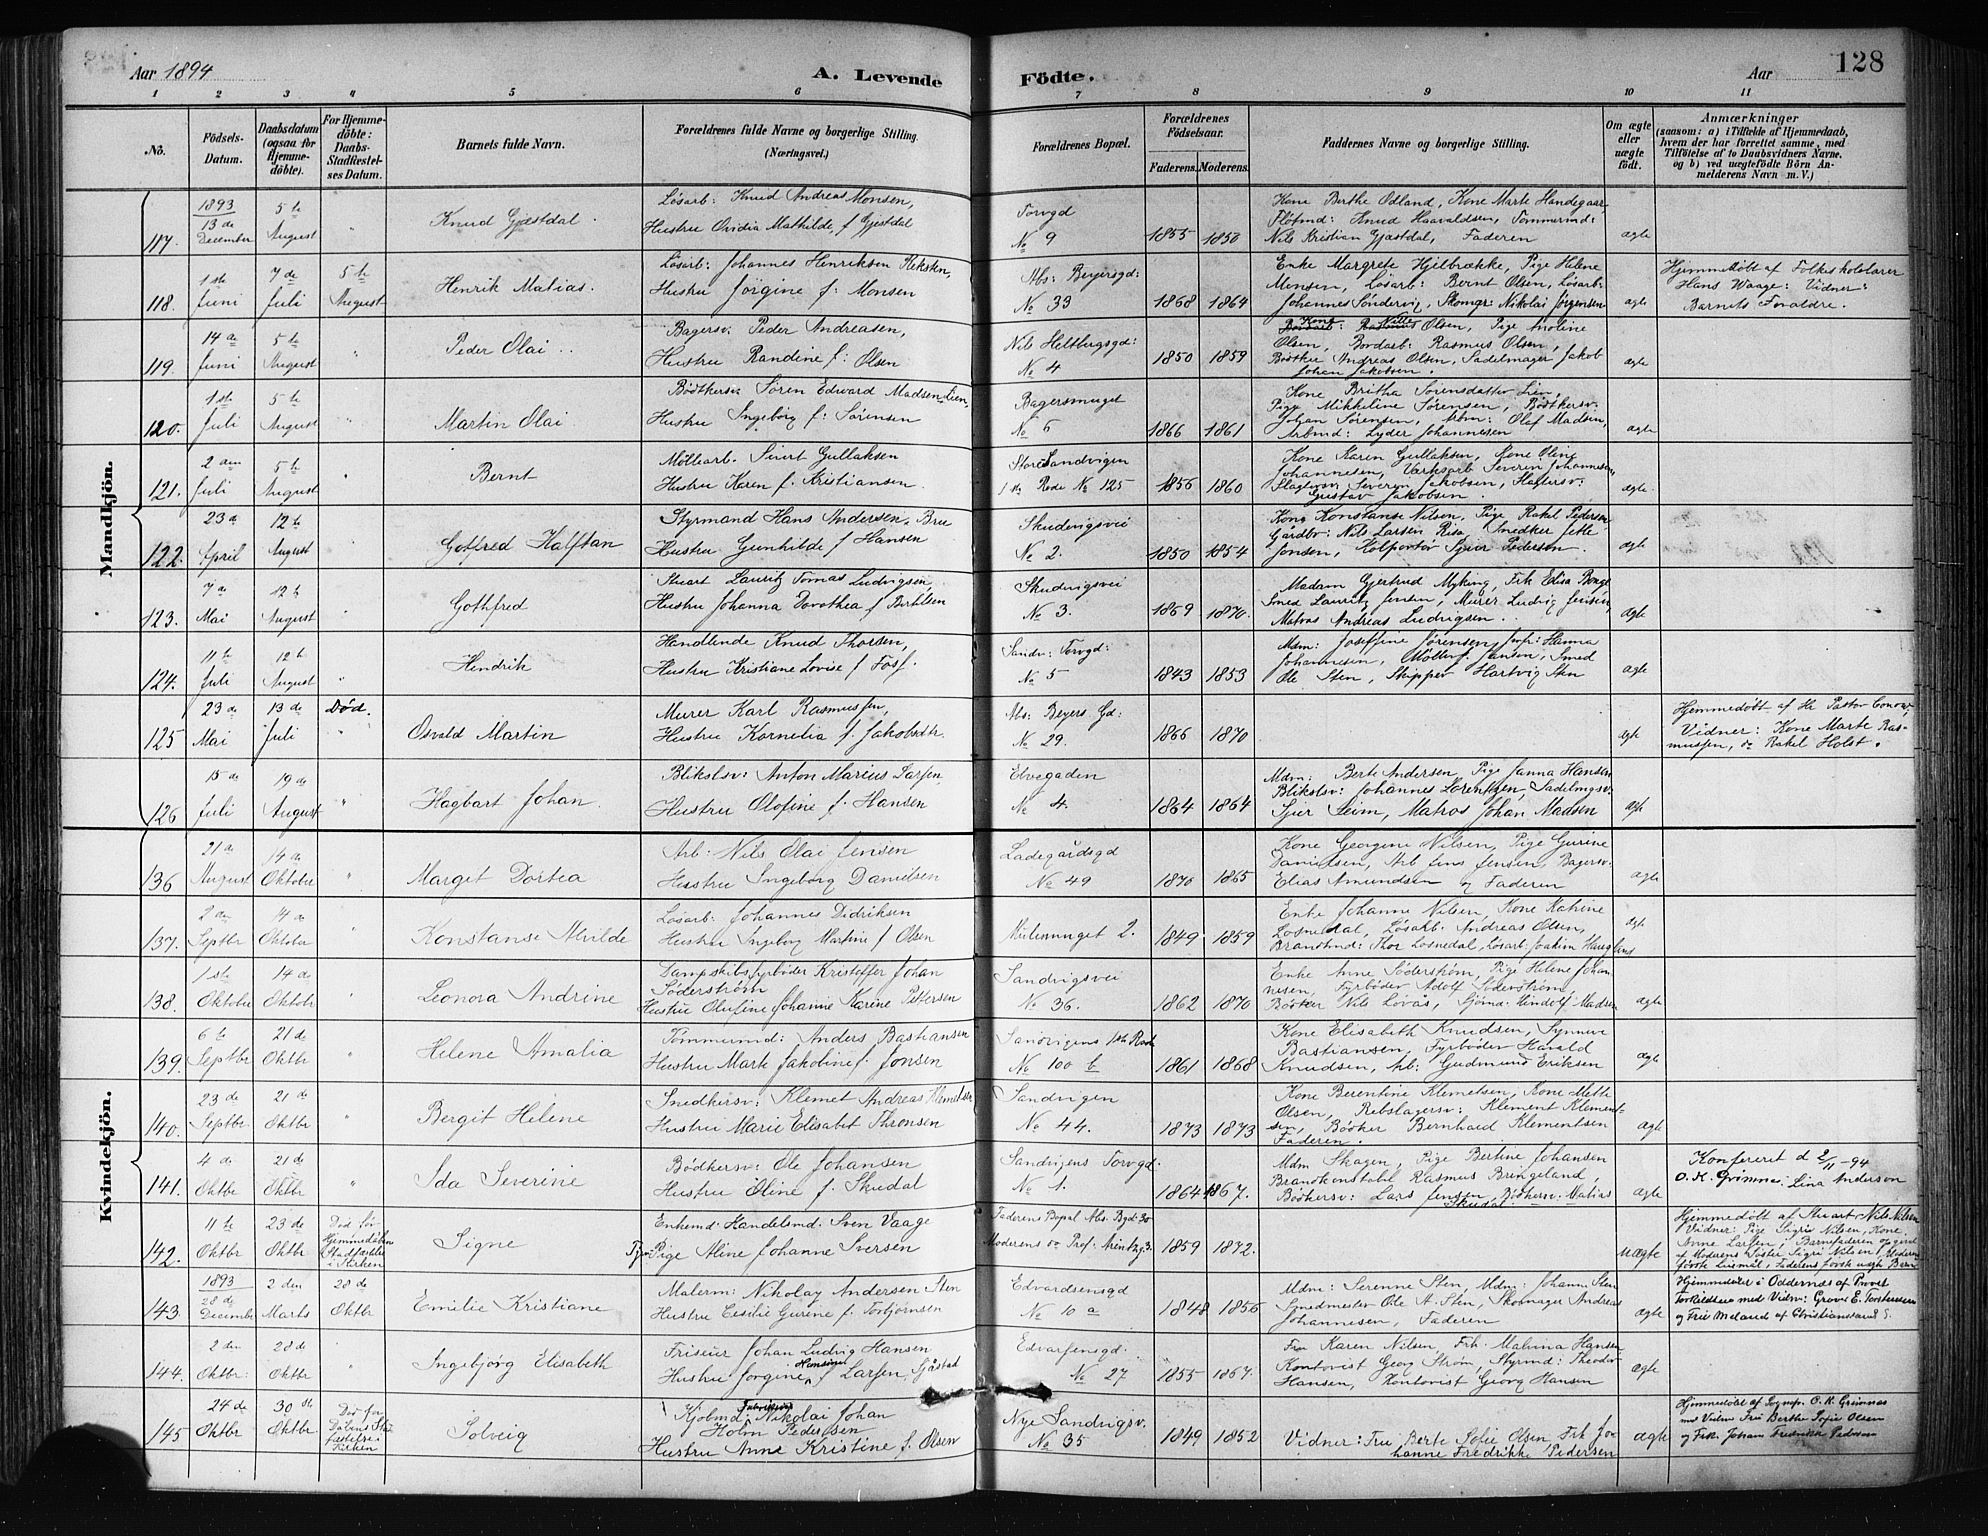 Aar 1894
A. Levende
Födte.
Aar
128
1 2 3 4 5 6 7 8 9 10 11
No.
Födsels-Datum.
Daabsdatum (ogsaa for Hjemmedöbte).
For Hjemmedöbte: Daabs-Stadfæstelses Datum.
Barnets fulde Navn.
Forældrenes fulde Navne og borgerlige Stilling.
(Næringsvei.)
Forældrenes Bopæl.
Forældrenes Födselsaar.
Faderens. Moderens.
Faddernes Navne og borgerlige Stilling.
Om ægte eller uægte födt.
Anmærkninger
(saasom: a) i Tilfælde af Hjemmedaab, hvem der har forrettet samme, med Tilföielse af to Daabsvidners Navne. og b) ved uægtefödte Börn Anmelderens Navn m. V.)
Mandkjön.
117. 1893 13 de December 5 te August " Knud Gjæstdal.
Lösarb: Knud Andreas Monsen,
Hustru Ovidia Mathilde f Gjestdal
Torvgd
No 9
1855 1850
Kone Berthe Odland, Kone Marte Handegaar,
Flötmd: Knud Haavaldsen, Tömmermd:
Nils Kristian Gjæstdal, Faderen
ægte
118. 1ste Juni 7 de Juli 5 te August Henrik Matias.
Lösarb: Johannes Henriksen Reksten,
Hustru Jörgine f: Monsen
Abs: Beyersgd:
No 33
1868 1864
Enke Margrete Hjelbrække, Pige Helene
Monsen, Lösarb: Bernt Olsen, Lösarb:
Johannes Söndervig, Skomgr: Nikolai Jørgensen
ægte
Hjemmedöbt af Folkeskolelærer
Hans Waage: Vidner:
Barnets Forældre.
119. 14 de Juni 5 te August " Peder Olai
Bagersv: Peder Andreasen,
Hustru Randine f: Olsen
Nils Heltbergsgd:
No 4
1850 1859
Kone Nille Olsen, Pige Anoline
Olsen, Bordarb: Rasmus Olsen,
Bödker Andreas Olsen, Sadelmager Jakob
Johan Jakobsen.
ægte
120. 1ste Juli 5 te August " Martin Olai
Bödtkersv: Sören Edward Madsen Lien,
Hustru Ingeborg f: Sørensen
Bagersmuget
No 5
1866 1861
Kone Britha Sörensdatter Lien,
Pige Mikkeline Sörensen, Bödtkersv:
Johan Sörensen, Arbm: Olaf Madsen,
Arbmd: Lyder Johannesen
ægte
121. 2 den Juli 5 te August " Bernt
Möllearb. Sivert Gullaksen
Hustru Karen f. Kristiansen
Store Sandvigen
1 ste Rode No 125
1856 1860
Kone Karen Gullaksen, Kone Oline
Johannesen, Værksarb Severin Johannesen
Slagtersv: Severin Jakobsen, Slagtersv:
Gustav Jakobsen.
ægte
122. 23 de April 12 te August " Gotfred Halftan
Styrmand Hans Andersen Bru
Hustru Gunhilde f Hansen
Skudevigsvei
No 2.
1850 1854
Kone Konstanse Nilsen, Pige Rakel Pedersen
Gårdbr: Nils Larsen Risa, Snedker Jette
Jonsen, Kolportör Sjur Pedersen.
ægte
123. 7 de Mai 12 te August " Gothfred
Stuart Lauritz Tomas Ludvigsen
Hustru Johanna Dorothea f Bertelsen
Skudevigsvei
No 3.
1869 1870.
Madam Gjertrud Myking, Frk Elisa Bonge
Smed Lauritz Jensen, Murer Ludvig Jensen,
Matros Andreas Ludvigsen.
ægte
124. 11 te Juli 12 te August " Hendrik
Handlende Knud Thorsen,
Hustru Kristiane Lovise f Foss.
Sandv: Torvgd:
No 5
1843 1853
Mdm: Joseffine Sörensen, Jmfr: Hanna
Johannesen, Möller J. Jansen, Smed
Ole Sten, Skipper Hartvig Sten
ægte
125 23 de Mai 13 de Juli Död. Osvald Martin
Murer Karl Rasmussen,
Hustru Kornelia f. Jakobsdtr.
Abs: Beyers Gd:
No 29.
1866 1870
ægte
Hjemmedöbt af Hr Pastor Conow,
Vidner: Kone Marte Rasmussen, do Rakel Holst.
126 15 de Juli 19 de August " Hagbart Johan
Blikslsv: Anton Marius Larsen
Hustru Olofine f. Hansen
Elvegaden
No 4.
1864 1864
Mdm: Berte Andersen, Pige Janna Hansen
Blikslsv: Johannes Lorentsen, Sadelmgsv.
Sjur Seim, Matros Johan Madsen
ægte
Kvindekjön.
136 21 de August 14 de Oktober " Margit Dortea
Arb: Nils Olai Jensen
Hustru Ingeborg Danielsen
Ladegårdsgd
No 49
1870 1865
Kone Georgine Nilsen, Pige Gurine
Danielsen, Arb Jens Jensen, Bagersv.
Elias Amundsen og Faderen
ægte
137. 2 den Septbr 14 de Oktober " Konstanse Alvilde
Lösarb: Johannes Didriksen
Hustru Ingeborg Martine f Olsen
Mülenmuget 2.
1849 1859
Enke Johanne Nilsen, Kone Katrine
Losnedal, Lösarb: Andreas Olsen,
Brandmd: Thor Losnedal, Lösarb: Joakim
ægte
138. 1ste Oktober 14 de Oktobr " Leonora Andrine
Dampskibsfyrböder Kristoffer Johan
Söderström
Hustru Olufine Johanne Karine Pettersen
Sandvigsvei
No 36.
1862 1870
Enke Anne Söderström, Pige Helene Johannesen, Fyrböder Adolf Söderström,
Bödker Nils Lövås, Sjömd. Madsen
ægte
139. 6 te Septbr 21 de Oktbr " Helene Amalia
Tömmermd: Anders Bastiansen
Hustru Marte Jakobine f. Jonsen
Sandvigens 1ste Rode
No 100 b
1861 1868
Kone Elisabeth Knudsen, Synneve
Bastiansen, Fyrböder Harald
Knudsen, Arb: Gudmund Eriksen
ægte
140. 23 de Septbr 21 de Oktbr " Bergit Helene
Snedkersv: Klemet Andreas Klemetsen
Hustru Marie Elisabet Thronsen
Sandvigen
No 44.
1873 1873
Kone Berentine Klemetsen, Kone Mette
Olsen, Rebslagersv: Klement Klementsen, Bödker Bernhard Klementsen
Faderen.
ægte
141. 4 de Oktbr 21 de Oktbr " Ida Severine
Bödkersv: Ole Johansen
Hustru Oline f. Skudal
Sandvigens Torvgd:
No 1.
1864 1867.
Mdm Skagen, Pige Bertine Johansen
Brandkonstabel Rasmus Bringeland,
Bödkersv: Lars Jensen, Bödkersv. Matias
Skudal
ægte
Konfereret d 2/11 -94
O. K. Grimnæs Lina Anderson
142. 11 te Oktbr 23 de Oktbr Död för Hjemmedåbens Stadfæstelse i Kirken Signe
Enkemd: Handelsmd. Sven Vaage
Tj: Pige Aline Johanne Iversen
Faderens Bopæl Abs. Bgd: 30
Moderens do Prof: Arentzg 3.
1859 1872.
uægte
Hjemmedöbt af Stuart Nils Nilsen
Vidner: Pige Sigri Nilsen, Kone
Anne Larsen, Barnefaderen opgivet
af Moderens Söster Sigri Nilsen, Moderens
förste Leiemål, Faderens förste uægte Barn
143. 1893 28 de December 2 den Marts 28 de Oktbr Emilie Kristiane
Malerm: Nikolay Andersen Sten
Hustru Cesilie Gurine f. Torbjörnsen
Edvardsensgd
No 10 a
1848 1856
Mdm: Serenne Sten, Mdm: Johanne Sten
Smedmester Ole A. Sten, Skomager Andreas
Johannesen, Faderen
ægte
Hjemmedöbt i Oddernæs af Provst
Torkildsen med Vidn: Grave E. Torstensen
og Frü Meland af Christianssand S.
144. 2 den Oktbr: 28 de Oktbr " Ingebjörg Elisabeth
Friseur Johan Ludvig Hansen
Hustru Jörgine Hansine f Larsen Gjåstad
Edvarsensgd.
No 27
1855 1867.
Fru Karen Nilsen, Frk. Malvina Hansen
Kontorist Georg Ström, Styrmd: Theodor
Hansen, Kontorist Georg Hansen
ægte
145 24 de Oktbr 30 te Oktbr Död for Dåbens Stadfæstelse i Kirken Solveig
Kjöbmd: Nikolai Johan
Holm Pedersen
Hustru Anna Kristine f. Olsen
Nye Sandvigsv.
No 35
1849 1852
Vidner: Fru Berte Sofie Olsen, Frk Johanne Fredrikke Pedersen
ægte
Hjemmedöbt af Sognepr. O. K. Grimnæs
med Vidner Frü Berthe Sofie Olsen
og Frk. Johan Fredrikke Pedersen